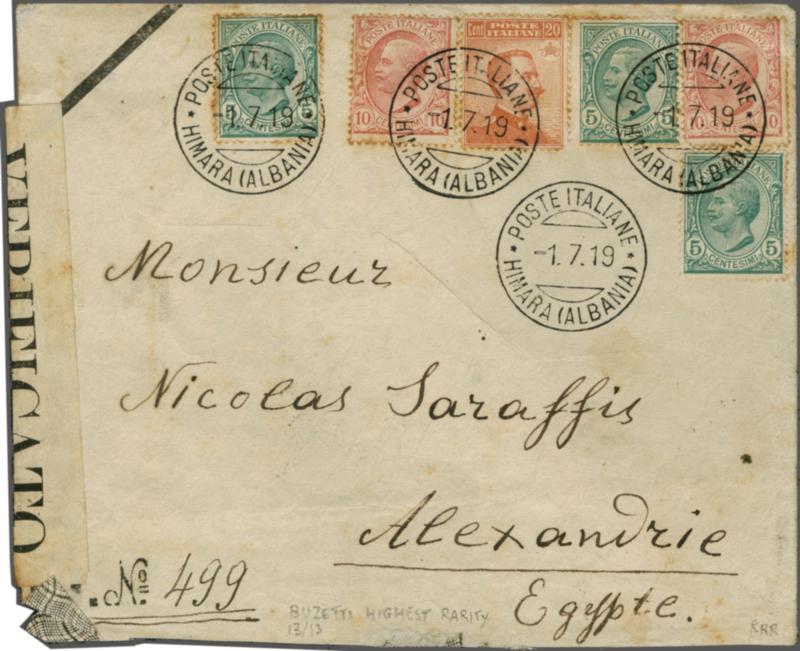 POSTE ITALIANE
5 5
CENTESIMI
POSTE ITALIANE
10
CENTESIMI
Cent POSTE ITALIANE 20
POSTE ITALIANE
5 5
CENTESIMI
POSTE ITALIANE
10
5 5
CENTESIMI
* POSTE ITALIANE *
-1.7.19
HIMARA (ALBANIA)
* POSTE ITALIANE *
-1.7.19
HIMARA (ALBANIA)
* POSTE ITALIANE *
-1.7.19
HIMARA (ALBANIA)
* POSTE ITALIANE *
-1.7.19
HIMARA (ALBANIA)
VERIFICATO
Monsieur
Nicolas Saraffis
Alexandrie
Egypte.
No 499
BUZETTI HIGHEST RARITY
13/13
RRR